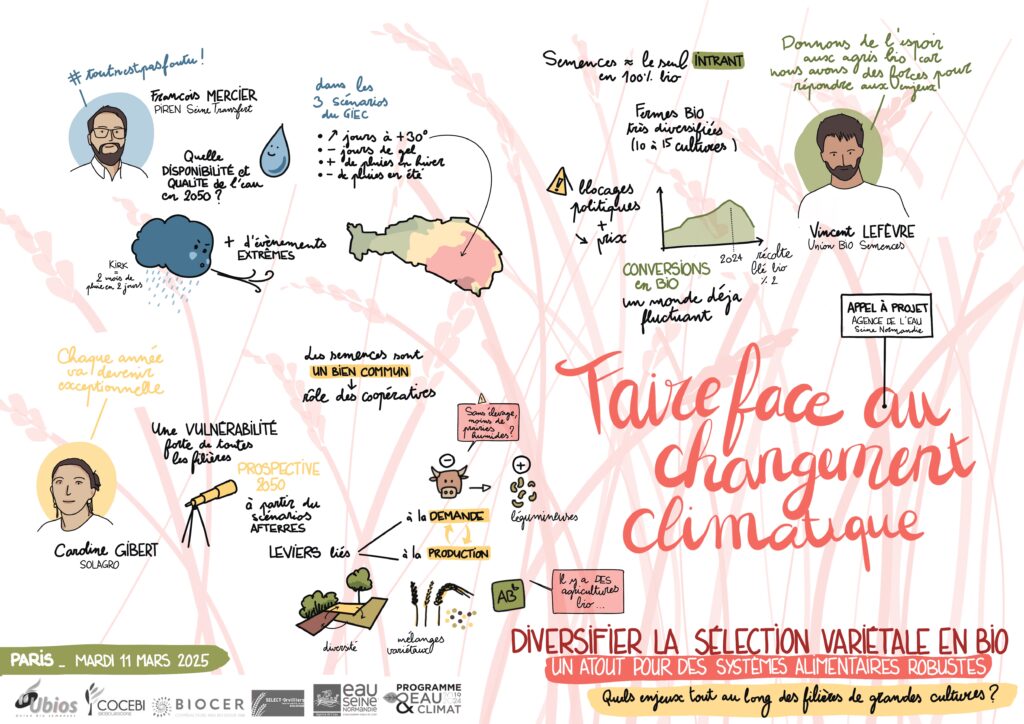 #toutnestpasfoutu!
François MERCIER
PIREN Seine Transfert
Quelle
DISPONIBILITÉ et
QUALITÉ de l'eau
en 2050 ?
dans les
3 scénarios
du GIEC
• ↗ jours à +30°
• - jours de gel
• + de pluies en hiver
• - de pluies en été
+ d'évènements
EXTRÊMES
KIRK
=
2 mois de
pluie en 2 jours
Semences ≈ le seul INTRANT
en 100% bio
Fermes BIO
très diversifiées
(10 à 15 cultures)
! blocages
politiques
+
↘ prix
2024
récolte
blé bio
% 2
CONVERSIONS
en BIO
un monde déjà
fluctuant
Donnons de l'espoir
aux agris bio car
nous avons des forces pour
répondre aux enjeux!
Vincent LEFÈVRE
Union BIO Semences
APPEL À PROJET
AGENCE DE L'EAU
Seine Normandie
Chaque année
va devenir
exceptionnelle
Caroline GIBERT
SOLAGRO
Une VULNÉRABILITÉ
forte de toutes
les filières
PROSPECTIVE
2050
à partir du
scénarios
AFTERRES
Les semences sont
UN BIEN COMMUN
rôle des coopératives
Sans élevage,
moins de
prairies
humides ?
-
+
légumineuses
LEVIERS liés
à la DEMANDE
à la PRODUCTION
diversité
mélanges
variétaux
AB
Il y a DES
agricultures
bio...
Faire face au
changement
climatique
DIVERSIFIER LA SÉLECTION VARIÉTALE EN BIO
UN ATOUT POUR DES SYSTÈMES ALIMENTAIRES ROBUSTES
Quels enjeux tout au long des filières de grandes cultures ?
PARIS _ MARDI 11 MARS 2025
Ubios
COCEBI
BIOCER
eau
seine
NORMANDIE
PROGRAMME
&EAU
&CLIMAT